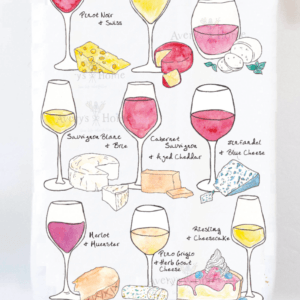 Pinot Noir
+ Swiss
Sauvignon Blanc
+ Brie
Cabernet
Sauvignon
+ Aged Cheddar
Zinfandel
+ Blue Cheese
Merlot
+ Muenster
Pino Grigio
+ Herb Goat
Cheese
Riesling
+ Cheesecake